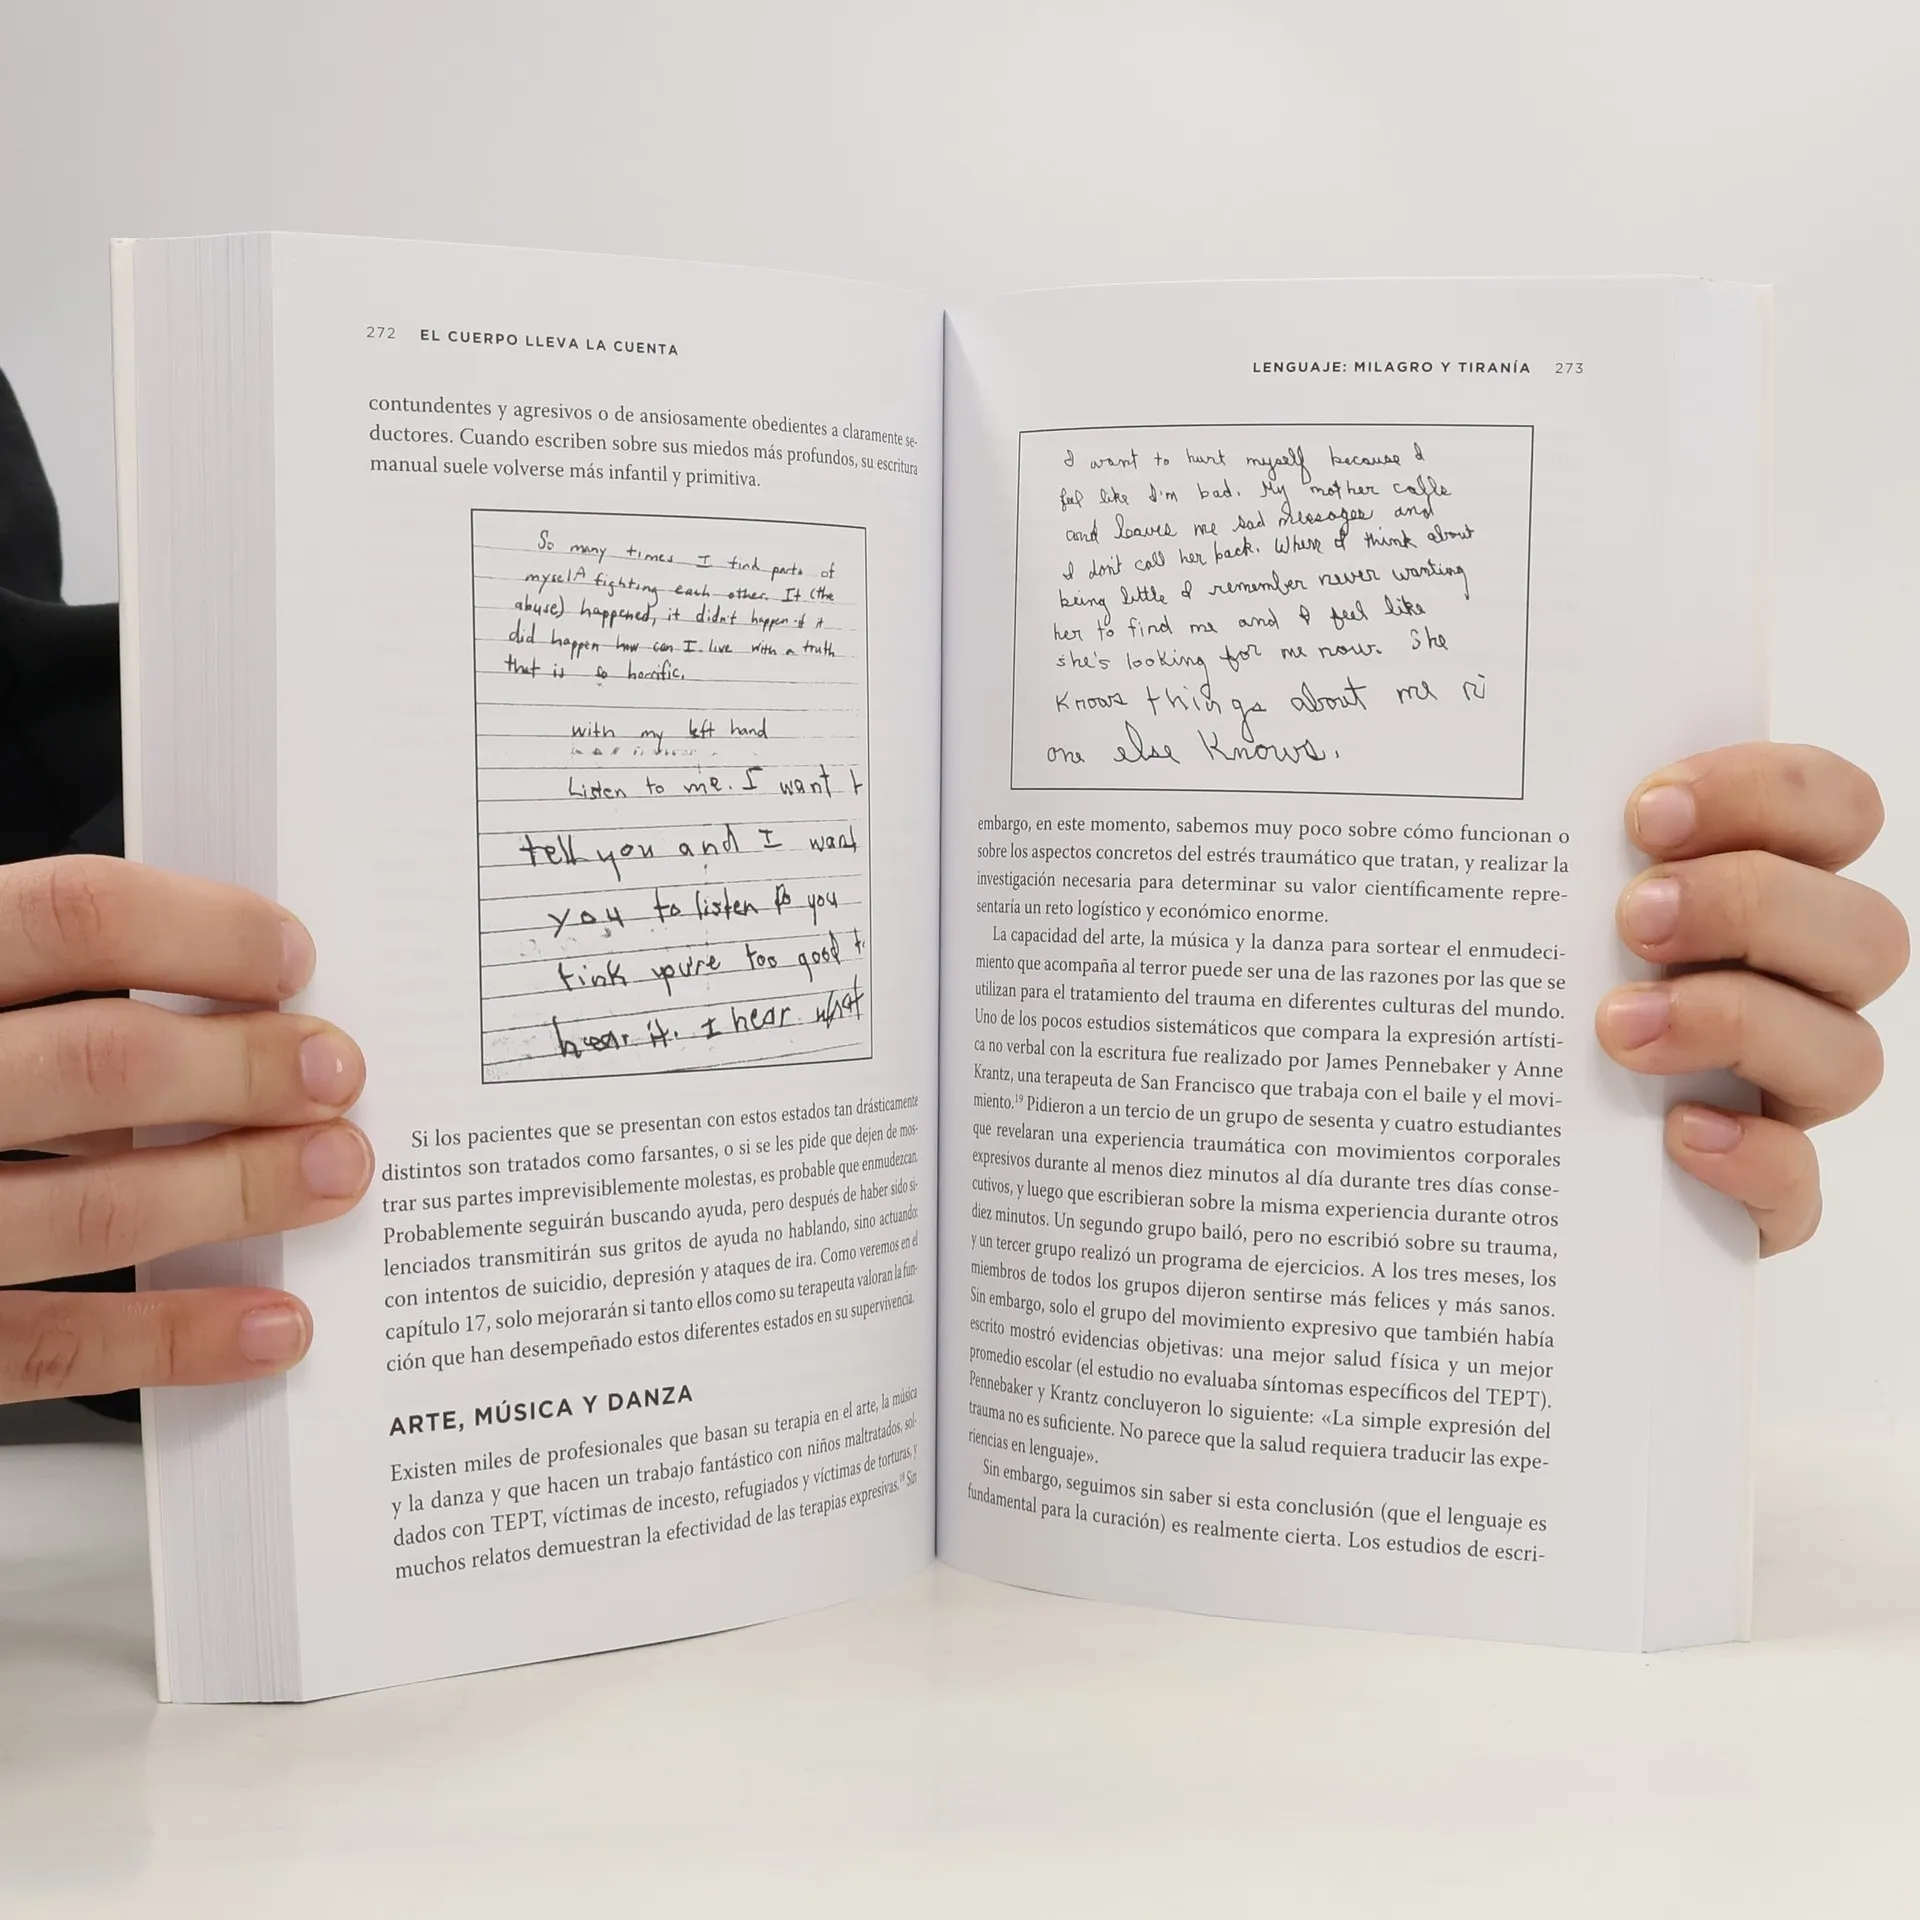 272 EL CUERPO LLEVA LA CUENTA
contundentes y agresivos o de ansiosamente obedientes a claramente se-
ductores. Cuando escriben sobre sus miedos más profundos, su escritura
manual suele volverse más infantil y primitiva.
So many times I find parts of
myself fighting each other. It (the
abuse) happened, it didn't happen if it
did happen how can I live with a truth
that is so horrific.
with my left hand
Listen to me. I want t
tell you and I want
you to listen you
tink you're too good t
hear it. I hear what
Si los pacientes que se presentan con estos estados tan drásticamente
distintos son tratados como farsantes, o si se les pide que dejen de mos-
trar sus partes imprevisiblemente molestas, es probable que enmudezcan.
Probablemente seguirán buscando ayuda, pero después de haber sido si-
lenciados transmitirán sus gritos de ayuda no hablando, sino actuando:
con intentos de suicidio, depresión y ataques de ira. Como veremos en el
capítulo 17, solo mejorarán si tanto ellos como su terapeuta valoran la fun-
ción que han desempeñado estos diferentes estados en su supervivencia.
ARTE, MÚSICA Y DANZA
Existen miles de profesionales que basan su terapia en el arte, la música
y la danza y que hacen un trabajo fantástico con niños maltratados, sol-
dados con TEPT, víctimas de incesto, refugiados y víctimas de torturas, y
muchos relatos demuestran la efectividad de las terapias expresivas.¹⁸ Sin
LENGUAJE: MILAGRO Y TIRANÍA 273
I want to hurt myself because I
feel like I'm bad. My mother calls
and leaves me sad messages and
I don't call her back. When I think about
being little I remember never wanting
her to find me and I feel like
she's looking for me now. She
knows things about me
one else knows.
embargo, en este momento, sabemos muy poco sobre cómo funcionan o
sobre los aspectos concretos del estrés traumático que tratan, y realizar la
investigación necesaria para determinar su valor científicamente repre-
sentaría un reto logístico y económico enorme.
La capacidad del arte, la música y la danza para sortear el enmudeci-
miento que acompaña al terror puede ser una de las razones por las que se
utilizan para el tratamiento del trauma en diferentes culturas del mundo.
Uno de los pocos estudios sistemáticos que compara la expresión artísti-
ca no verbal con la escritura fue realizado por James Pennebaker y Anne
Krantz, una terapeuta de San Francisco que trabaja con el baile y el movi-
miento.¹⁹ Pidieron a un tercio de un grupo de sesenta y cuatro estudiantes
que revelaran una experiencia traumática con movimientos corporales
expresivos durante al menos diez minutos al día durante tres días conse-
cutivos, y luego que escribieran sobre la misma experiencia durante otros
diez minutos. Un segundo grupo bailó, pero no escribió sobre su trauma,
y un tercer grupo realizó un programa de ejercicios. A los tres meses, los
miembros de todos los grupos dijeron sentirse más felices y más sanos.
Sin embargo, solo el grupo del movimiento expresivo que también había
escrito mostró evidencias objetivas: una mejor salud física y un mejor
promedio escolar (el estudio no evaluaba síntomas específicos del TEPT).
Pennebaker y Krantz concluyeron lo siguiente: «La simple expresión del
trauma no es suficiente. No parece que la salud requiera traducir las expe-
riencias en lenguaje».
Sin embargo, seguimos sin saber si esta conclusión (que el lenguaje es
fundamental para la curación) es realmente cierta. Los estudios de escri-